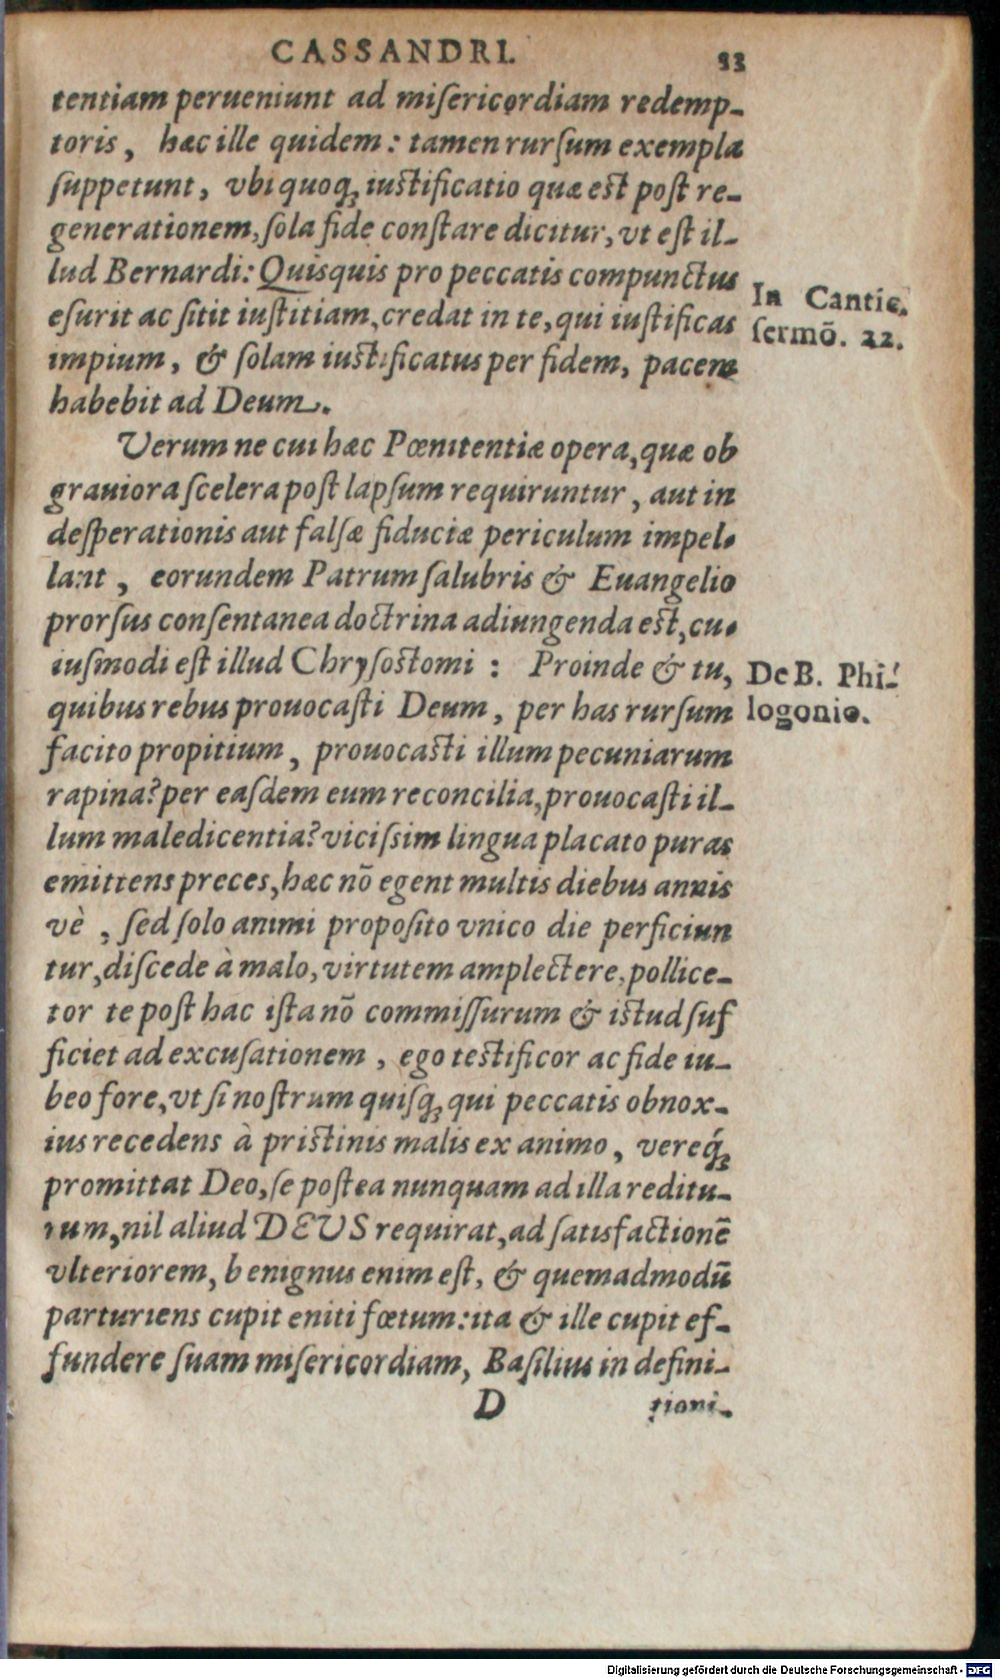 CASSANDRI. 33
tentiam perueniunt ad miſericordiam redemp-
toris, hæc ille quidem: tamen rurſum exempla
ſuppetunt, vbi quoq́; iuſtificatio quæ eſt poſt re-
generationem, ſola fide conſtare dicitur, vt eſt il-
lud Bernardi: Quisquis pro peccatis compunctus
eſurit ac ſitit iuſtitiam, credat in te, qui iuſtificas
impium, & ſolam iuſtificatus per fidem, pacem
habebit ad Deum.
In Cantic.
ſermō. 22.
Verum ne cui hæc Pœnitentiæ opera, quæ ob
grauiora ſcelera poſt lapſum requiruntur, aut in
deſperationis aut falſæ fiduciæ periculum impel-
lant, eorundem Patrum ſalubris & Euangelio
prorſus conſentanea doctrina adiungenda eſt, cu-
iuſmodi eſt illud Chryſoſtomi: Proinde & tu,
quibus rebus prouocaſti Deum, per has rurſum
De B. Phi-
logonio.
facito propitium, prouocaſti illum pecuniarum
rapina? per eaſdem eum reconcilia, prouocaſti il-
lum maledicentia? viciſsim lingua placato puras
emittens preces, hæc nō egent multis diebus annis
vè, ſed ſolo animi propoſito vnico die perficiun
tur, diſcede à malo, virtutem amplectere, pollice-
tor te poſt hac iſta nō commiſſurum & iſtud ſuf
ficiet ad excuſationem, ego teſtificor ac fide iu-
beo fore, vt ſi noſtrum quiſq; qui peccatis obnox-
ius recedens à priſtinis malis ex animo, vereq́;
promittat Deo, ſe poſtea nunquam ad illa reditu-
rum, nil aliud DEUS requirat, ad ſatisfactionē
vlteriorem, benignus enim eſt, & quemadmodū
parturiens cupit eniti fœtum: ita & ille cupit ef-
fundere ſuam miſericordiam, Baſilius in defini-
D tioni-
Digitalisierung gefördert durch die Deutsche Forschungsgemeinschaft - DFG